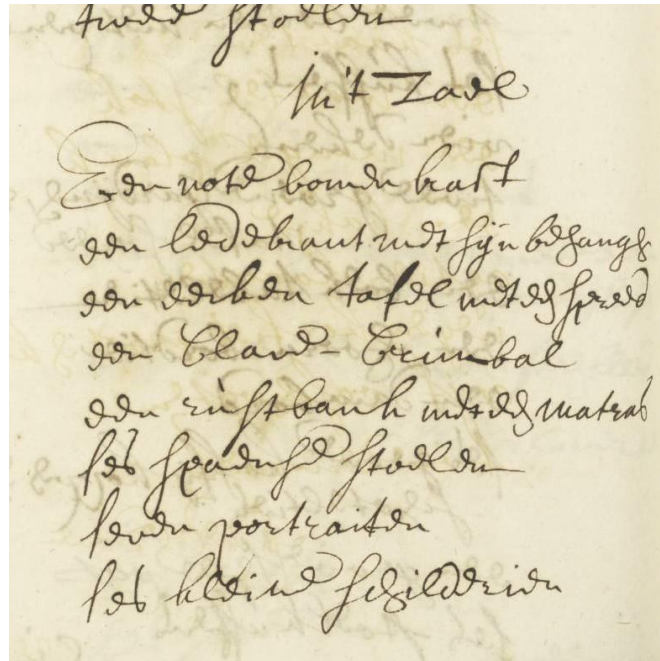 twee stoelen
in't Zael
Een note bomen kast
een ledekant met sijn behangs
een eecken tafel met een spreed
een Clave-Cimbal
een rustbank met een matras
ses spaense stoelen
seven portraiten
ses kleine schilderien